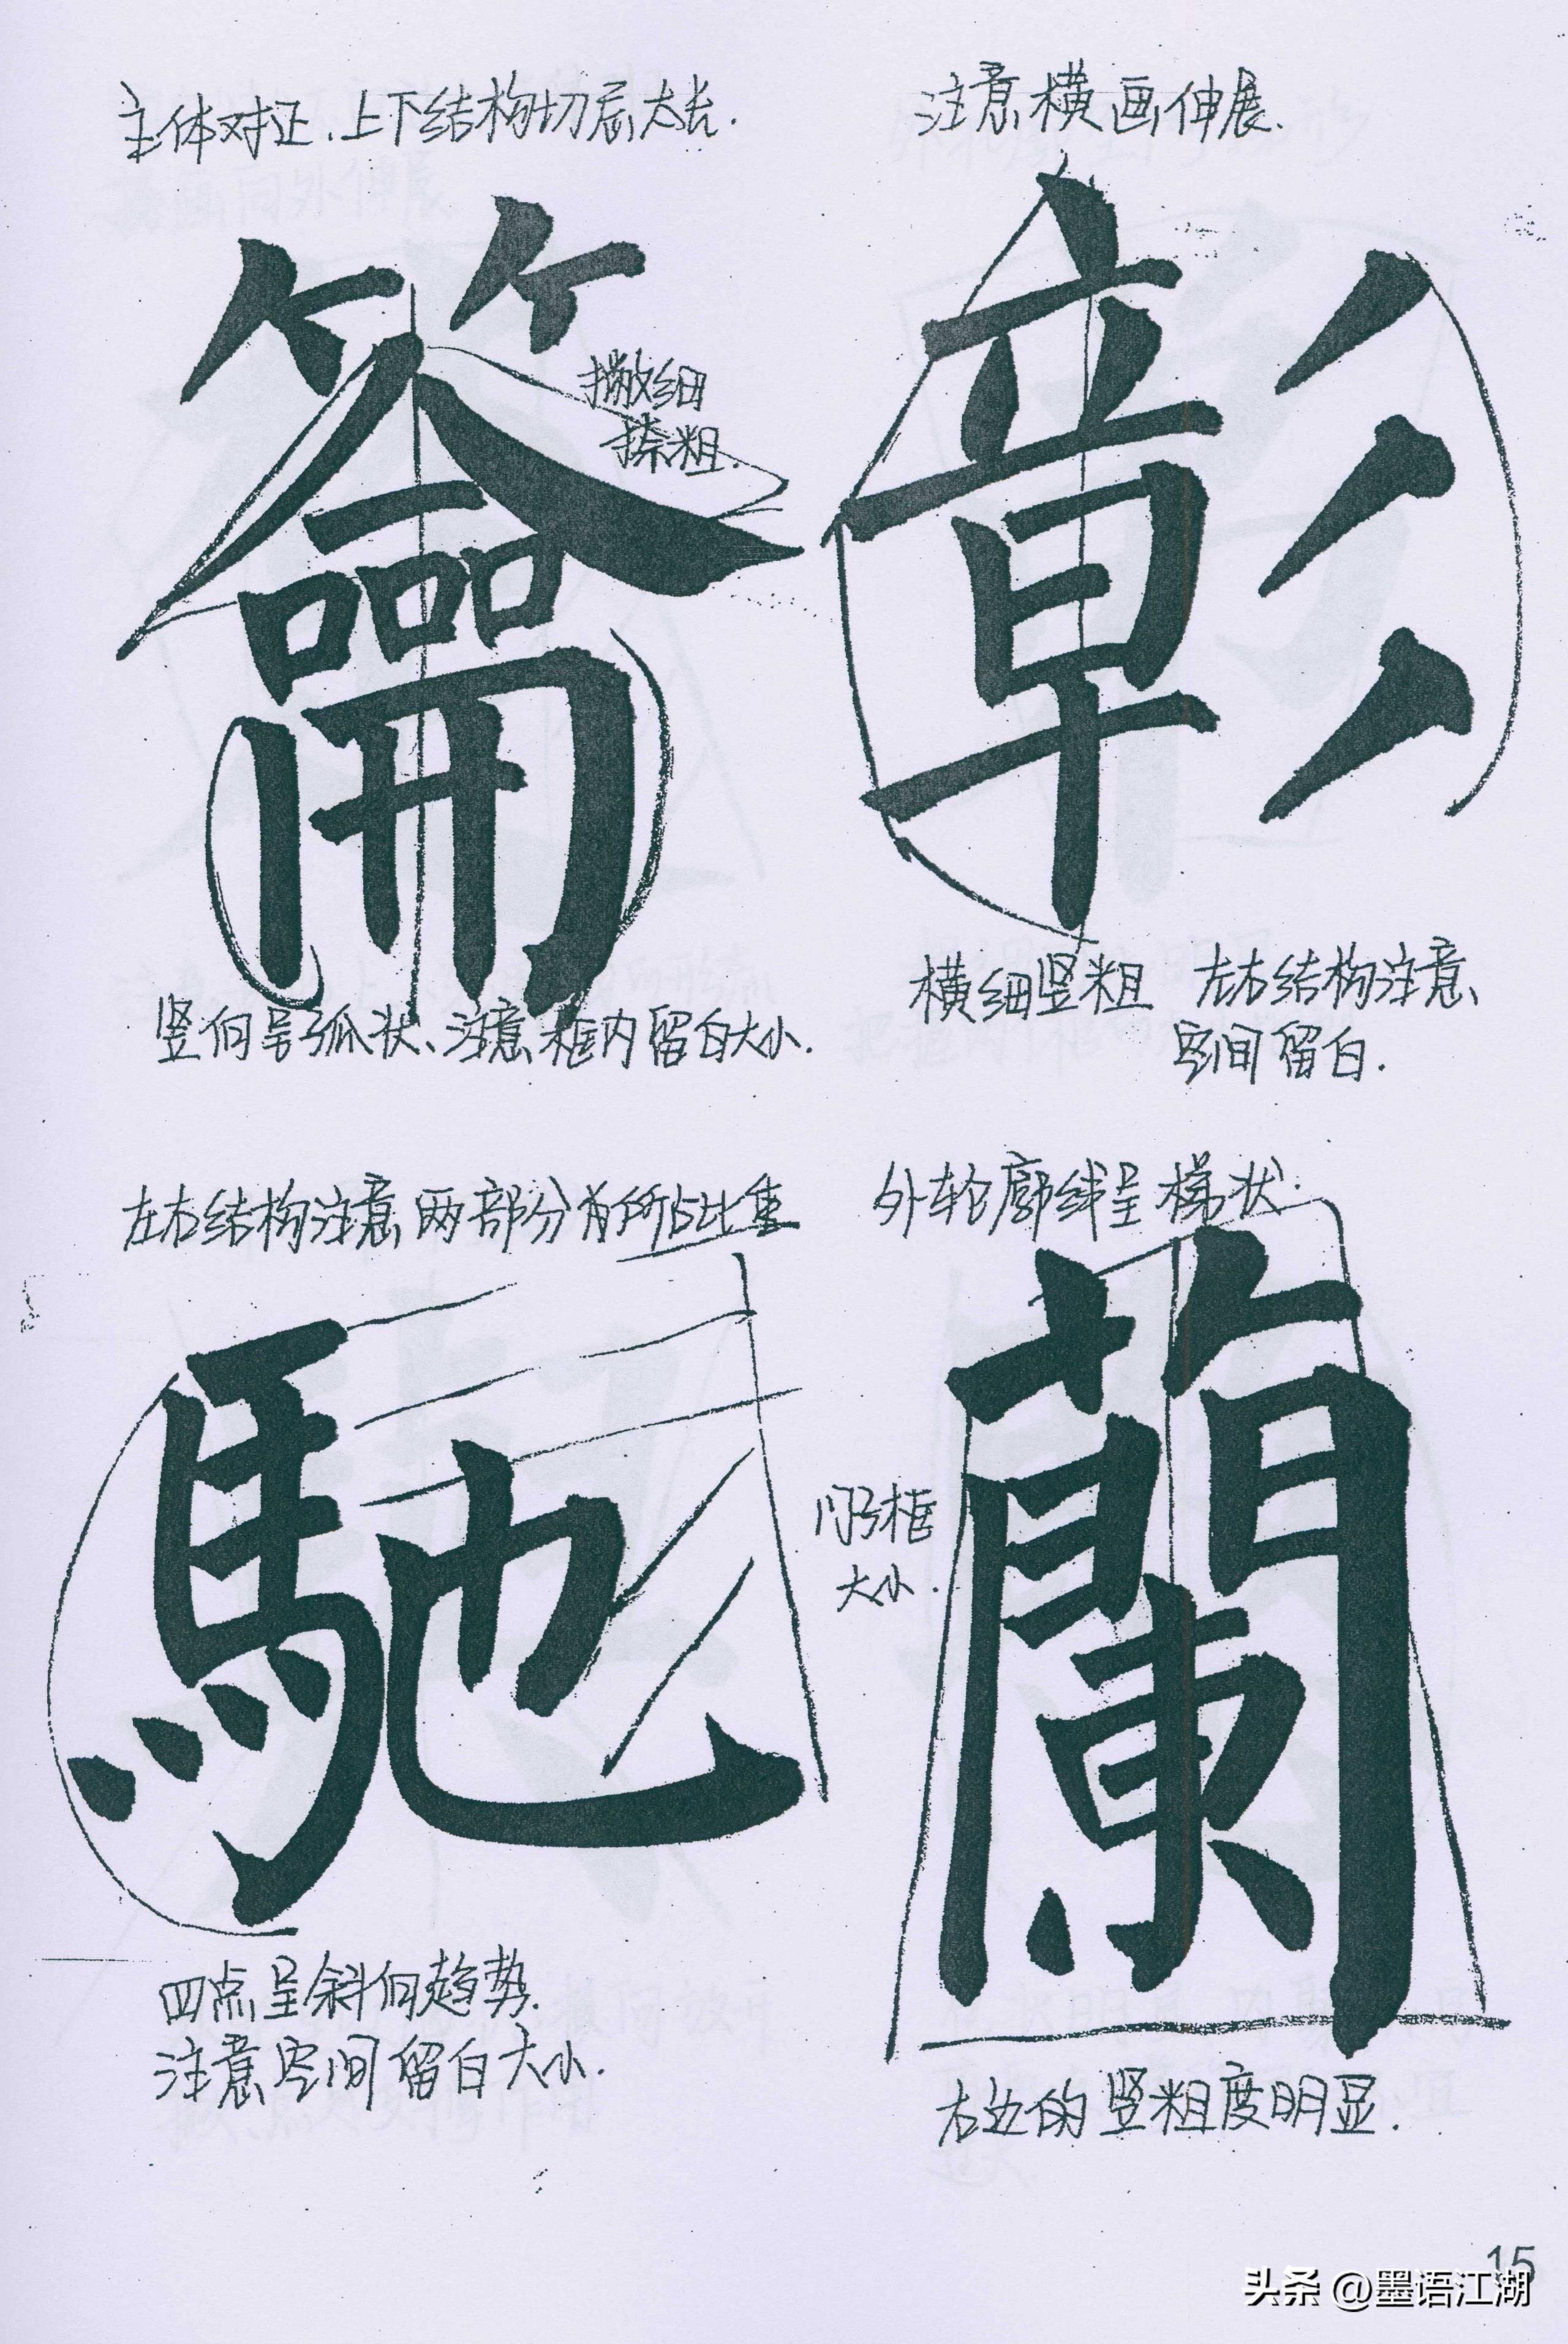 主体对正.上下结构切忌太长.
籥
撇细
捺粗.
竖向呈弧状、注意框内留白大小.
注意横画伸展.
彰
横细竖粗
左右结构注意
空间留白.
左右结构注意两部分有所占比重
馳
四点呈斜向趋势.
注意空间留白大小.
外轮廓线呈梯状.
门字框
大小.
蘭
右边的竖粗度明显.
15
头条 @墨语江湖